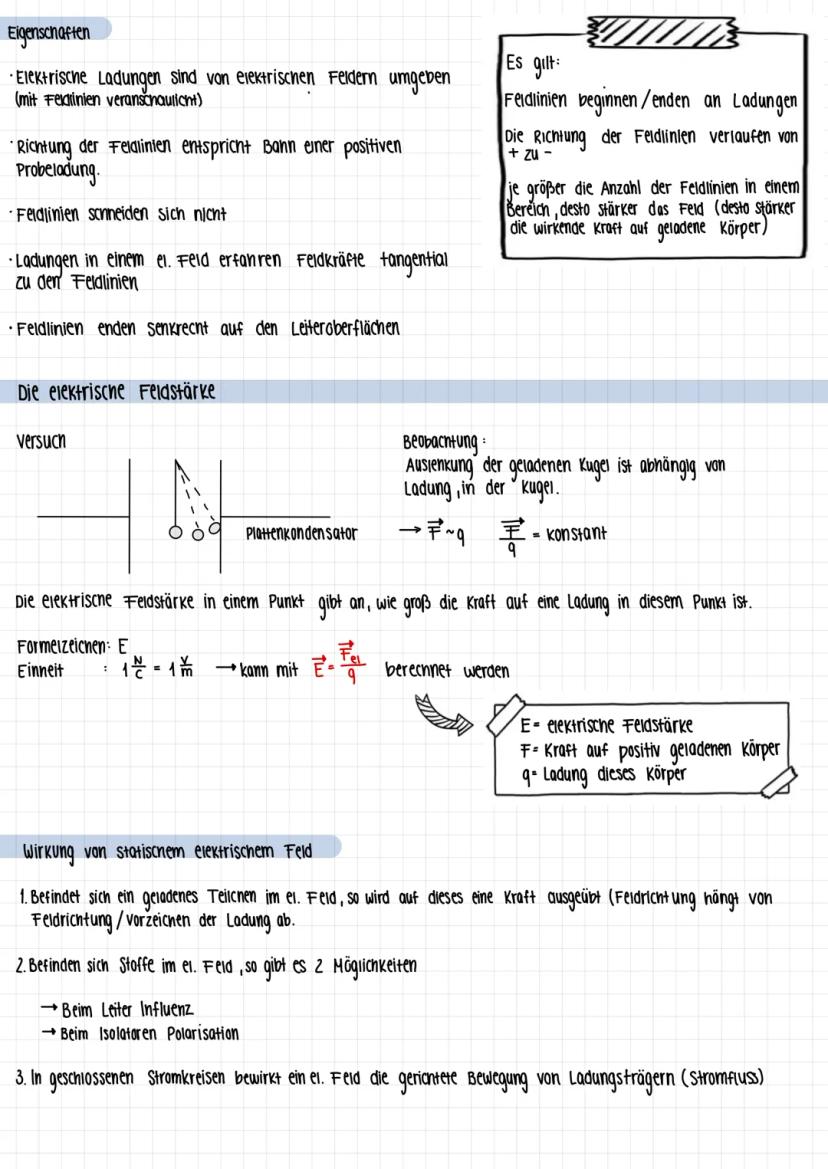 Eigenschaften
· Elektrische Ladungen sind von elektrischen Feldern umgeben
(mit Feldlinien veranschaulicht)
· Richtung der Feldlinien entspricht Bahn einer positiven
Probeladung.
· Feldlinien schneiden sich nicht
· Ladungen in einem el. Feld erfahren Feldkräfte tangential
zu den Feldlinien
· Feldlinien enden senkrecht auf den Leiteroberflächen
Es gilt:
Feldlinien beginnen/enden an Ladungen
Die Richtung der Feldlinien verlaufen von
+ zu -
je größer die Anzahl der Feldlinien in einem
Bereich, desto stärker das Feld (desto stärker
die wirkende Kraft auf geladene Körper)
Die elektrische Feldstärke
Versuch
Plattenkondensator
Beobachtung:
Auslenkung der geladenen Kugel ist abhängig von
Ladung, in der Kugel.
→ F⃗ ~ q F⃗/q = konstant
Die elektrische Feldstärke in einem Punkt gibt an, wie groß die Kraft auf eine Ladung in diesem Punkt ist.
Formelzeichen: E
Einheit : 1 N/C = 1 V/m → kann mit E⃗ = F⃗el/q berechnet werden
E = elektrische Feldstärke
F = Kraft auf positiv geladenen Körper
q = Ladung dieses Körper
Wirkung von statischem elektrischem Feld
1. Befindet sich ein geladenes Teilchen im el. Feld, so wird auf dieses eine Kraft ausgeübt (Feldrichtung hängt von
Feldrichtung/Vorzeichen der Ladung ab.
2. Befinden sich Stoffe im el. Feld, so gibt es 2 Möglichkeiten
→ Beim Leiter Influenz
→ Beim Isolatoren Polarisation
3. In geschlossenen Stromkreisen bewirkt ein el. Feld die gerichtete Bewegung von Ladungsträgern (Stromfluss)